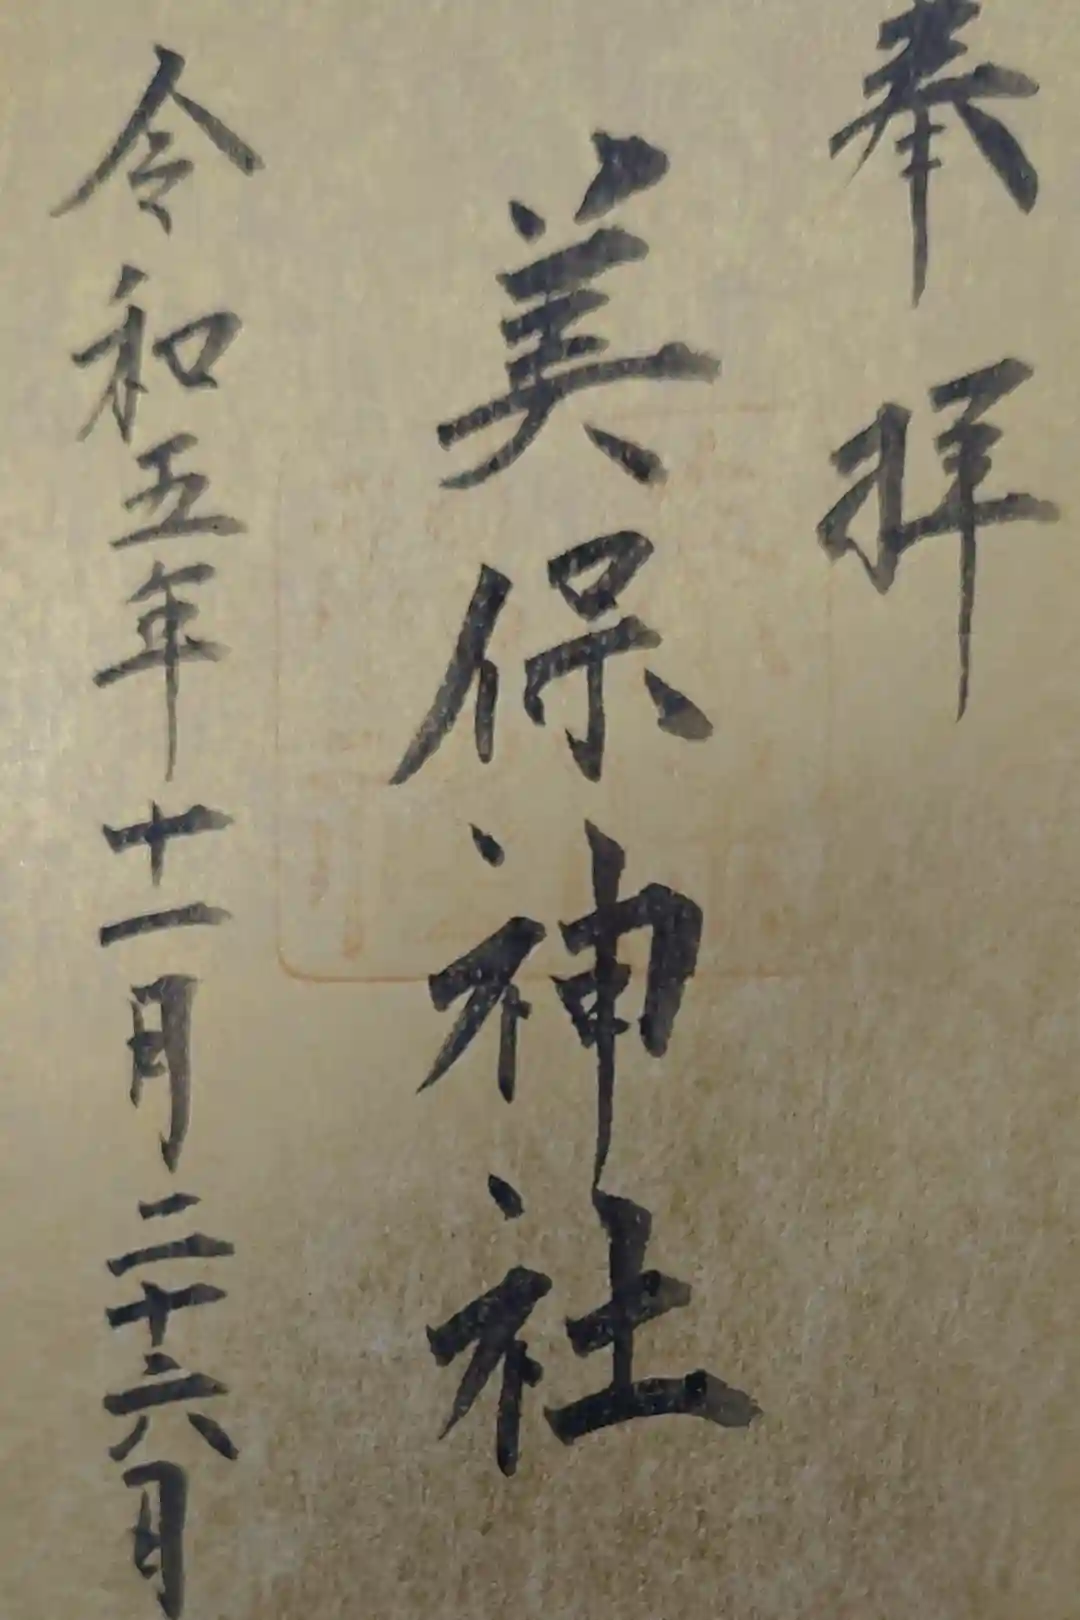 奉拝
美保神社
令和五年十一月二十六日